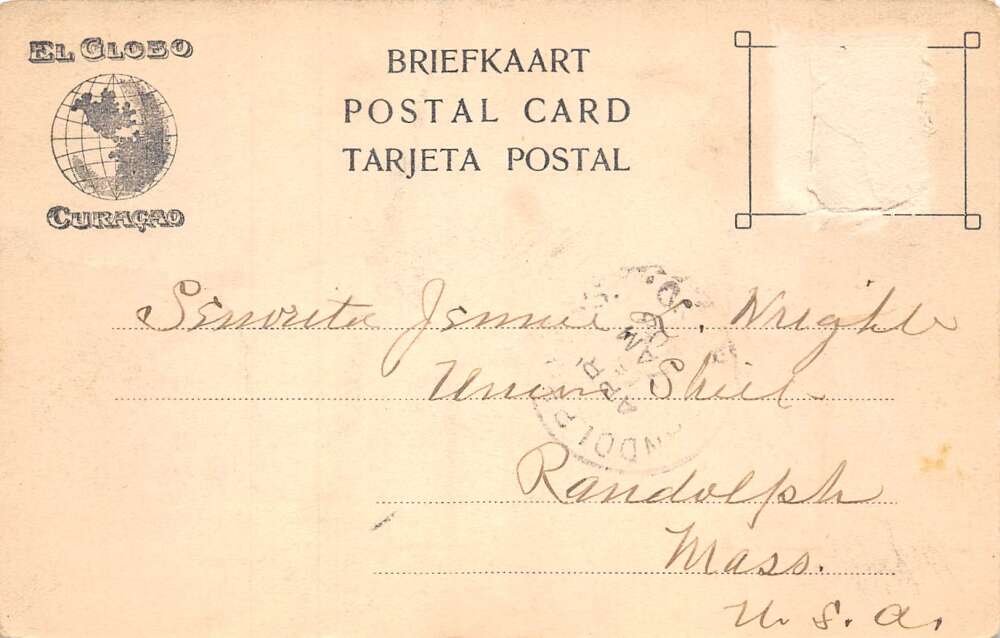 EL GLOBO
CURAÇAO
BRIEFKAART
POSTAL CARD
TARJETA POSTAL
Senorita Jennie Wright
Union Shie
Randolph
Mass.
U. S. A.
APR 26
AM